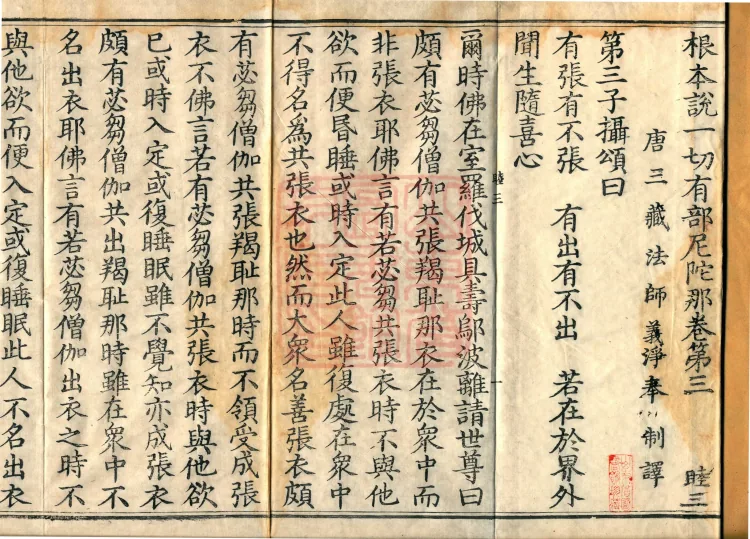 根本說一切有部尼陀那卷第三 睦三
唐三藏法師義淨奉 制譯
第三子攝頌曰
有張有不張 有出有不出 若在於界外
聞生隨喜心
爾時佛在室羅伐城具壽鄔波離請世尊曰
頗有苾芻僧伽共張羯恥那衣在於眾中而
非張衣耶佛言有若苾芻共張衣時不與他
欲而便昏睡或時入定此人雖復處在眾中
不得名為共張衣也然而大眾名善張衣頗
有苾芻僧伽共張羯恥那時而不領受成張
衣不佛言若有苾芻僧伽共張衣時與他欲
已或時入定或復睡眠雖不覺知亦成張衣
頗有苾芻僧伽共出羯恥那時雖在眾中不
名出衣耶佛言有若苾芻僧伽出衣之時不
與他欲而便入定或復睡眠此人不名出衣
睦三
一